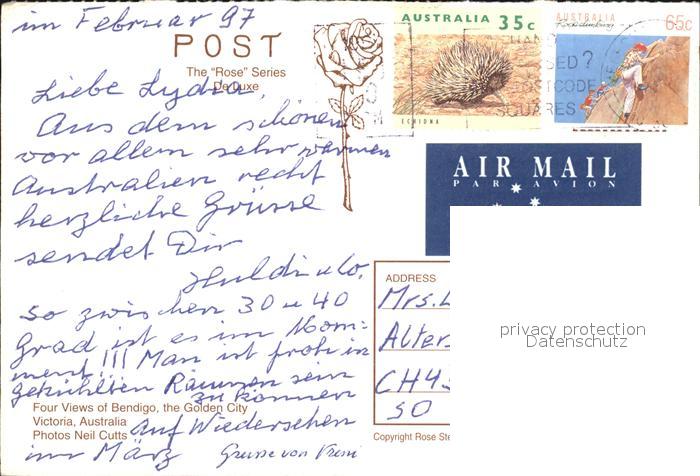 im Februar 97
POST
The "Rose" Series
De Luxe
AUSTRALIA 35c
ECHIDNA
AUSTRALIA 65c
Rock climbing
USED?
POSTCODE
SQUARES
AIR MAIL
PAR AVION
Liebe Lydia,
Aus dem schönen
vor allem sehr warmen
Australien recht
herzliche Grüsse
sendet Dir
Huldi u Co.
So zwischen 30 u 40
Grad ist es im Mom=
ment!!! Man ist froh in
gekühlten Räumen sein
zu können
Auf Wiedersehen
im März
Grüsse von Vreni
Four Views of Bendigo, the Golden City
Victoria, Australia
Photos Neil Cutts
ADDRESS
Mrs. L
Alters
CH4
SO
Copyright Rose Ste
privacy protection
Datenschutz